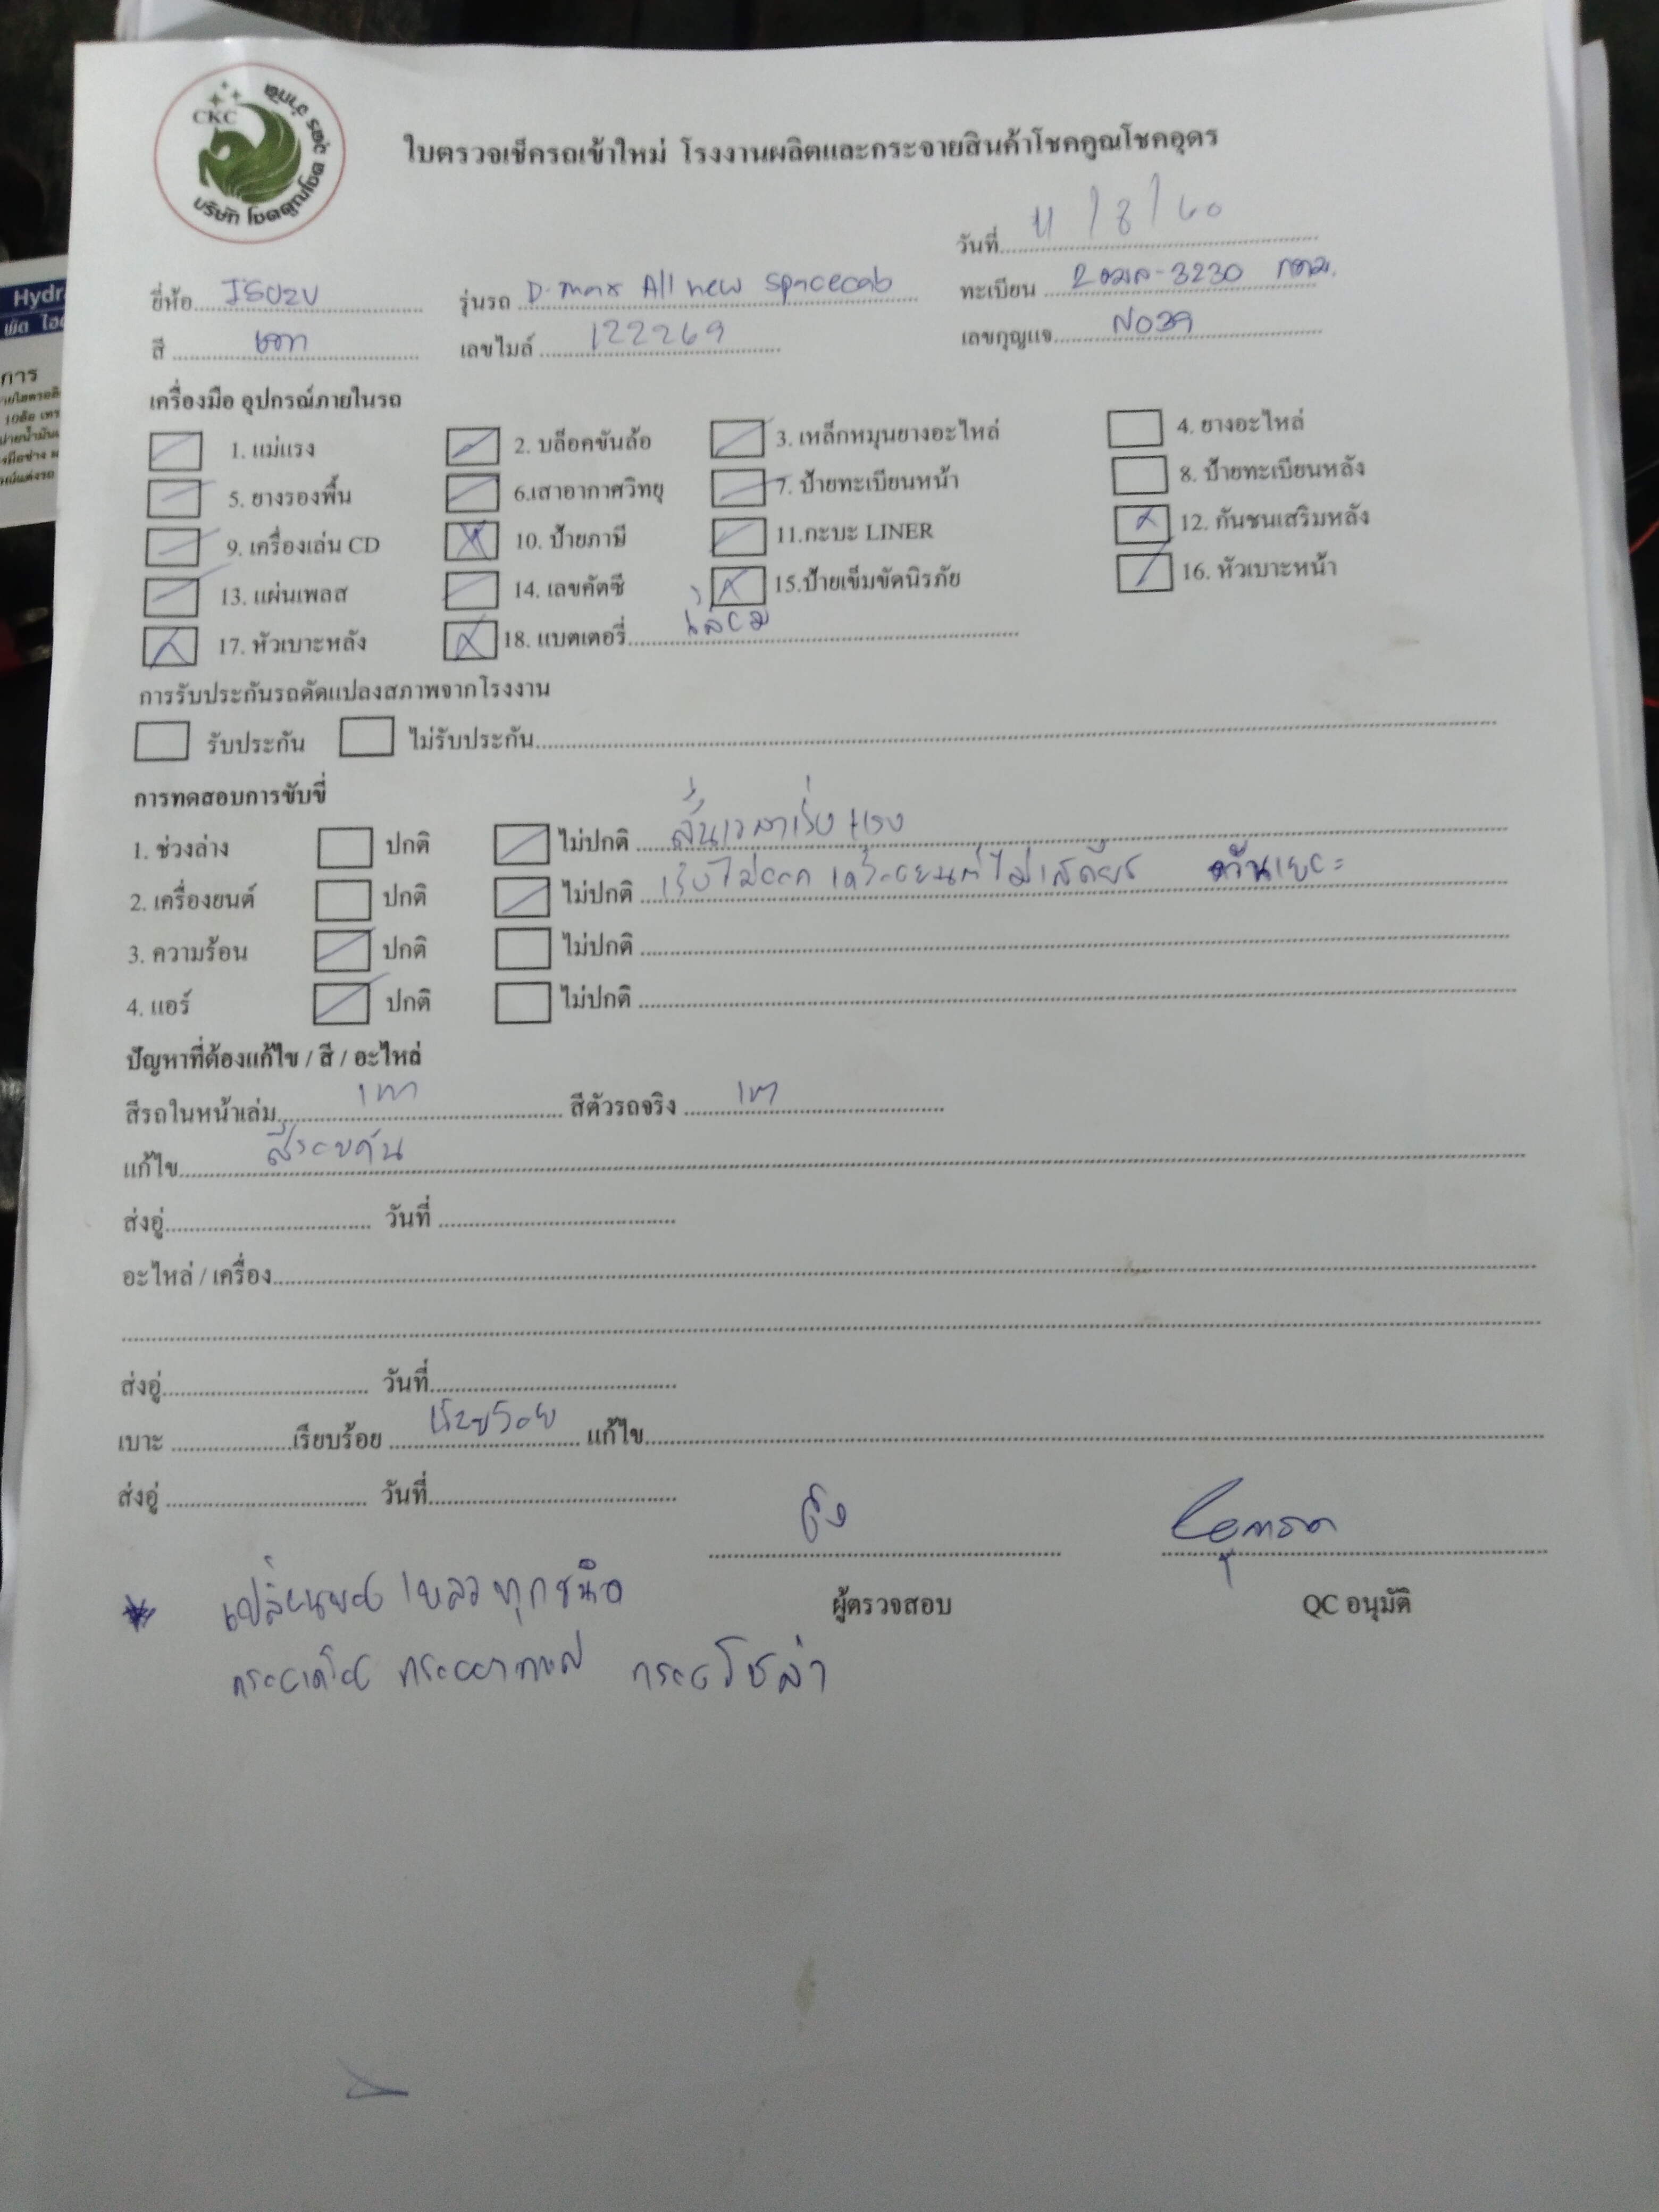 CKC
บริษัท โชคคูณโชค อุดร จำกัด
ใบตรวจเช็ครถเข้าใหม่ โรงงานผลิตและกระจายสินค้าโชคคูณโชคอุดร
วันที่ 11 / 8 / 60
ยี่ห้อ ISUZU รุ่นรถ D-max All new spacecab ทะเบียน 2ฒล-3230 กทม.
สี เทา เลขไมล์ 122269 เลขกุญแจ
เครื่องมือ อุปกรณ์ภายในรถ
1. แม่แรง 2. บล็อคขันล้อ 3. เหล็กหมุนยางอะไหล่ 4. ยางอะไหล่
5. ยางรองพื้น 6.เสาอากาศวิทยุ 7. ป้ายทะเบียนหน้า 8. ป้ายทะเบียนหลัง
9. เครื่องเล่น CD 10. ป้ายภาษี 11.กะบะ LINER 12. กันชนเสริมหลัง
13. แผ่นเพลส 14. เลขคัตซี 15.ป้ายเข็มขัดนิรภัย 16. หัวเบาะหน้า
17. หัวเบาะหลัง 18. แบตเตอรี่ เสื่อม
การรับประกันรถดัดแปลงสภาพจากโรงงาน
รับประกัน ไม่รับประกัน
การทดสอบการขับขี่
1. ช่วงล่าง ปกติ ไม่ปกติ สั่นเวลาเร่งแรง
2. เครื่องยนต์ ปกติ ไม่ปกติ เร่งไม่ออก เครื่องยนต์ไม่เสถียร ควันเยอะ
3. ความร้อน ปกติ ไม่ปกติ
4. แอร์ ปกติ ไม่ปกติ
ปัญหาที่ต้องแก้ไข / สี / อะไหล่
สีรถในหน้าเล่ม เทา สีตัวรถจริง เทา
แก้ไข สีรอบคัน
ส่งอู่ วันที่
อะไหล่ / เครื่อง
ส่งอู่ วันที่
เบาะ เรียบร้อย เรียบร้อย แก้ไข
ส่งอู่ วันที่
ผู้ตรวจสอบ QC อนุมัติ
* เปลี่ยนของเหลวทุกชนิด
กรองเครื่อง กรองอากาศ กรองโซล่า
Hydr
การ